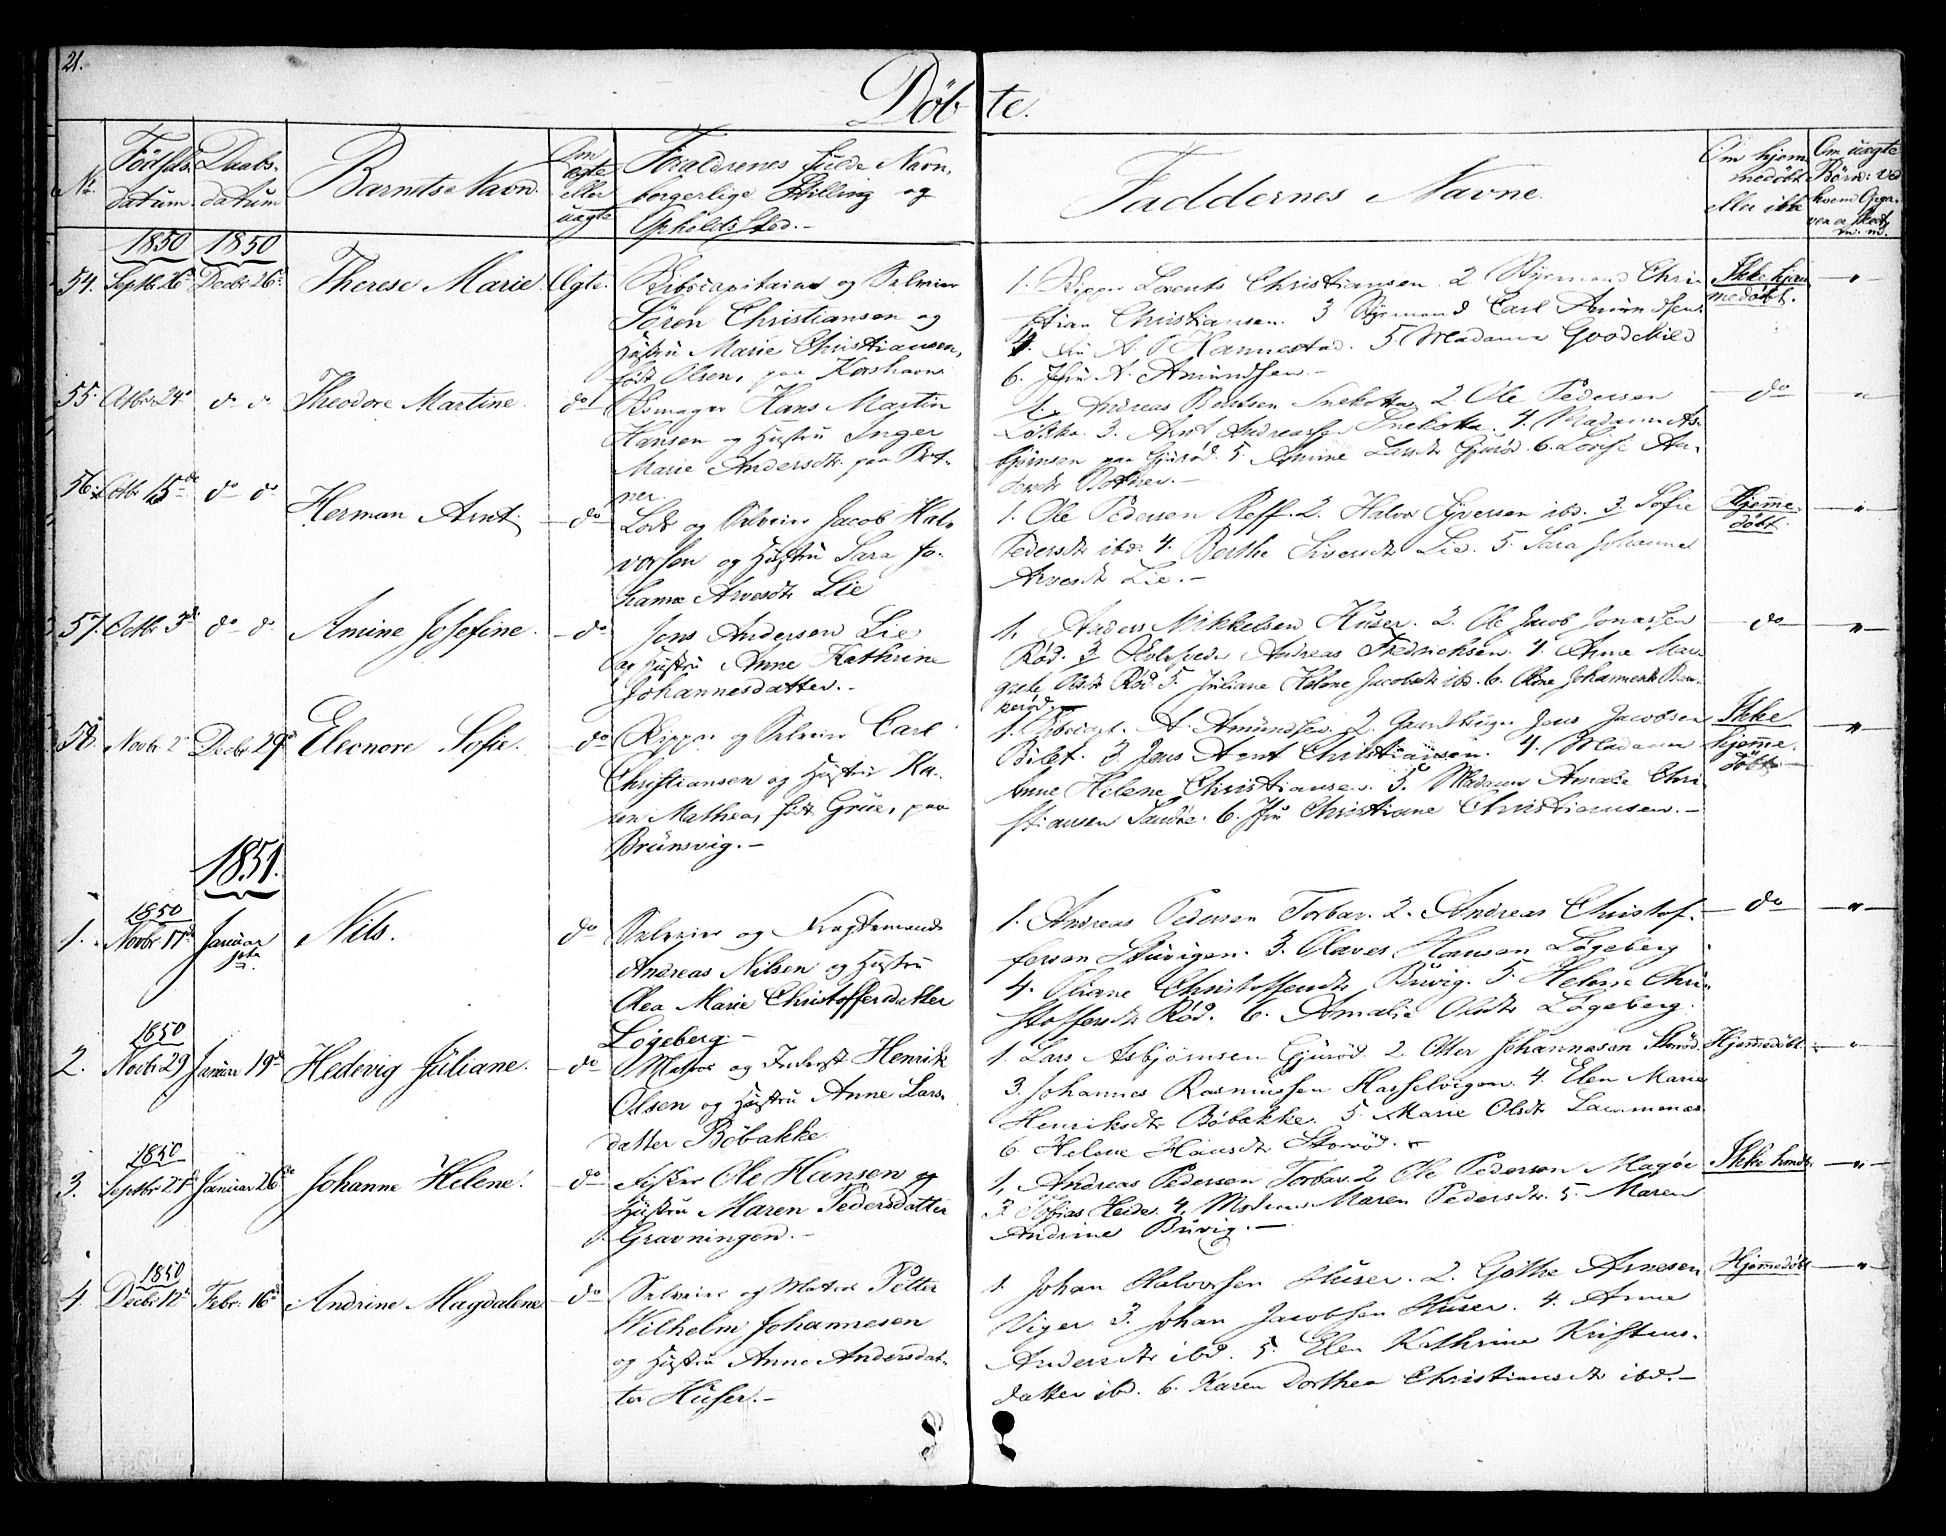 21.
Döbte.
No.
Födsels datum
Daabs-datum
Barnets Navn.
Om ægte eller uægte
Forældrenes fulde Navn, borgerlige Stilling og Opholds Sted.-
Faddernes Navne.
Om hjemmedöbt eller ikke
Om uægte Börn: ved
1850 1850
54. Septbr 26 Decbr 26 Therese Marie Ægte.
og Selveier
Sören Christiansen og
Hustru Marie Christiansen,
född Olsen, paa Korshavn
1. Skipper Lorents Christiansen. 2 Styrmand Chri-
stian Christiansen. 3 Styrmand Carl Amundsen.
4. A. Hannestad. 5. Madame Goodchild
6. Jfru A. Amundsen.-
Ikke hjem
medöbt.
55. Octbr 24 do do Theodore Martine. do
Hans Martin
Hansen og Hustru Inger
Marie Andersdtr. paa Bot-
ner.
1. Andreas Bentsen Snekotta 2 Ole Pedersen
Lökka. 3. Arnt Andreassen Snekotta. 4. Madame As-
björnsen paa Gjuröd. 5. Amine Larsdtr Gjuröd. 6. Lovise An-
dersdtr Botner.-
do
56. Octbr 15de do do Herman Arnt. do
Lods og Selveier Jacob Hal-
vorsen og Hustru Sara Jo-
hanne Arvesdtr Lie
1. Ole Pedersen Reff. 2. Halvor Syversen ibd. 3 Sofie
Pedersdtr ibd. 4. Berthe Siversdtr Lie. 5. Sara Johanne
Arvesdtr Lie.-
Hjemme-
döbt.
57. Octbr 3de do do Amine Josefine. do
Jens Andersen Lie
og Hustru Anne Kathrine
Johannesdatter.-
1. Anders Mikkelsen Huser. 2. Ole Jacob Jonassen
Röd. 3 Andreas Fredricksen. 4. Anne Mar-
grete Olsdtr Röd. 5. Juliane Helene Jacobsdtr ibd. 6. Oline Johannesdtr
do
58. Novbr 2 Decbr 29 Eleonore Sofie. do
Skipper og Selveier Carl
Christiansen og Hustru Ka-
ren Mathea, född Grue, paa
Brunsvig.-
1. A. Amundsen. 2. Jens Jacobsen
Bilet. 3. Jens Arnt Christiansen. 4. Madame
Anne Helene Christiansen. 5. Madame Amalie Chri-
stiansen Sandöe. 6. Jfru Christiane Christiansen.-
Ikke
hjemme-
döbt
1851.
1. 1850 Novbr 17de Januar 1ste Nils. do
Selveier og Fragtemand
Andreas Nilsen og Hustru
Olea Marie Christoffersdatter
Lögeberg-
1. Andreas Pedersen Torbar. 2. Andreas Christof-
fersen Stuvigen. 3. Olaves Hansen Lögeberg
4. Oliane Christoffersdtr Buvig. 5. Helene Chri-
stoffersdtr Röd. 6. Amalia Olsdtr Lögeberg.
do
2. 1850 Novbr 29 Januar 19de Hedevig Juliane. do
Matros og Inderst Henrik
Olsen og Hustru Anne Lars-
datter Böbakke
1. Lars Asbjörnsen Gjuröd. 2 Otter Johannesen Storöd.
3. Johannes Rasmussen Hasselvigen. 4. Elen Marie
Henriksdtr Böbakke. 5. Marie Olsdtr Lammenæs
6. Helene Hansdtr Storöd.-
Hjemmedöbt
3. 1850 Septbr 21de Januar 26de Johanne Helene. do
Fisker Ole Hansen og
Hustru Maren Pedersdatter
Gravningen.-
1. Andreas Pedersen Torbar. 2 Ole Pedersen Magöe
3. Tobias Heide. 4. Madame Maren Pedersdtr. 5. Maren
Andrine Buvig.-
Ikke hmdt
4. 1850 Decbr 12te Febr: 16de Andrine Magdalene do
Selveier og Matros Petter
Wilhelm Johannesen
og Hustru Anne Andersdat-
ter Huser.-
1. Johan Halvorsen Huser. 2. Göthe Arnesen
Viger 3. Johan Jacobsen Huser. 4. Anne
Andersdtr ibd. 5. Elen Kathrine Kristens-
datter ibd. 6. Karen Dorthea Christiansdtr ibd.-
Hjemmedöbt